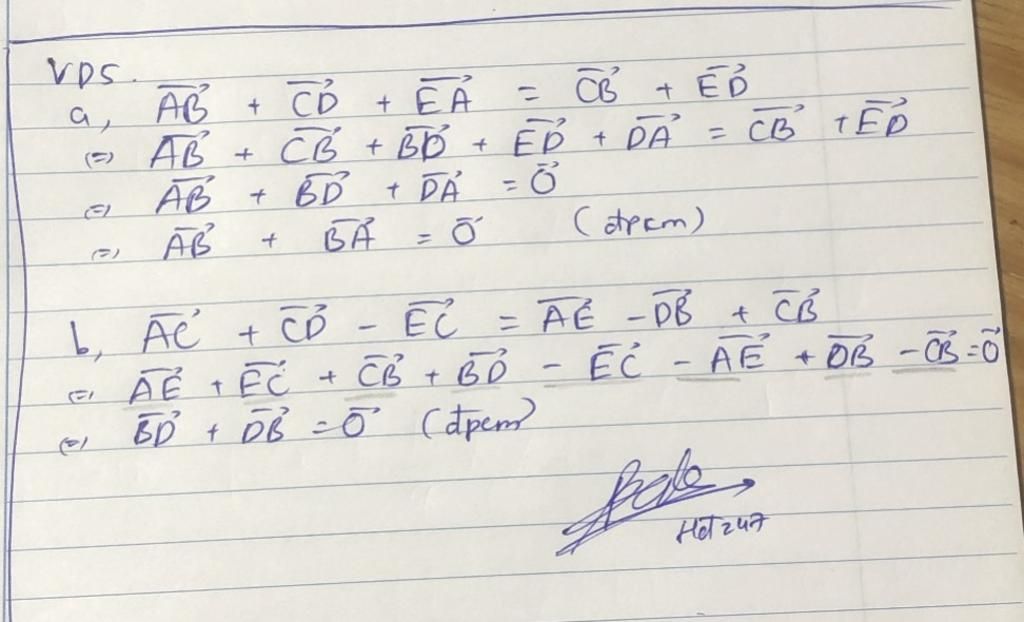 VD5.
a, AB⃗ + CD⃗ + EA⃗ = CB⃗ + ED⃗
(=) AB⃗ + CB⃗ + BD⃗ + ED⃗ + DA⃗ = CB⃗ + ED⃗
(=) AB⃗ + BD⃗ + DA⃗ = 0⃗
(=) AB⃗ + BA⃗ = 0⃗ (đpcm)
b, AC⃗ + CD⃗ - EC⃗ = AE⃗ - DB⃗ + CB⃗
(=) AE⃗ + EC⃗ + CB⃗ + BD⃗ - EC⃗ - AE⃗ + DB⃗ - CB⃗ = 0⃗
(=) BD⃗ + DB⃗ = 0⃗ (đpcm)